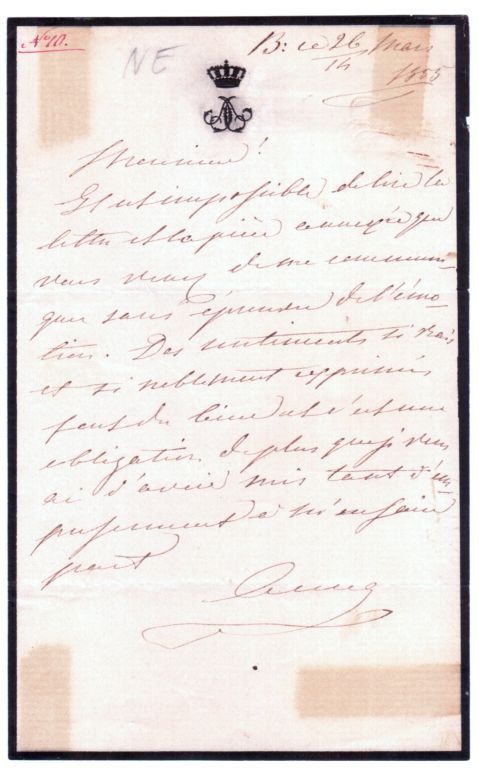 No 10.
NE
B: ce 26/14 Mars
1855
Monsieur!
Il est impossible de lire la
lettre et la pièce annexée que
vous venez de me communi-
quer sans éprouver de l'émo-
tion. Des sentiments si vrais
et si noblement exprimés
font du bien et c'est une
obligation de plus que je vous
ai d'avoir mis tant d'em-
pressement à m'en faire
part